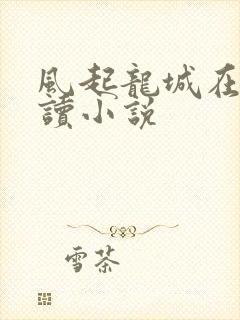 風起龍城在
讀小説
雪茶